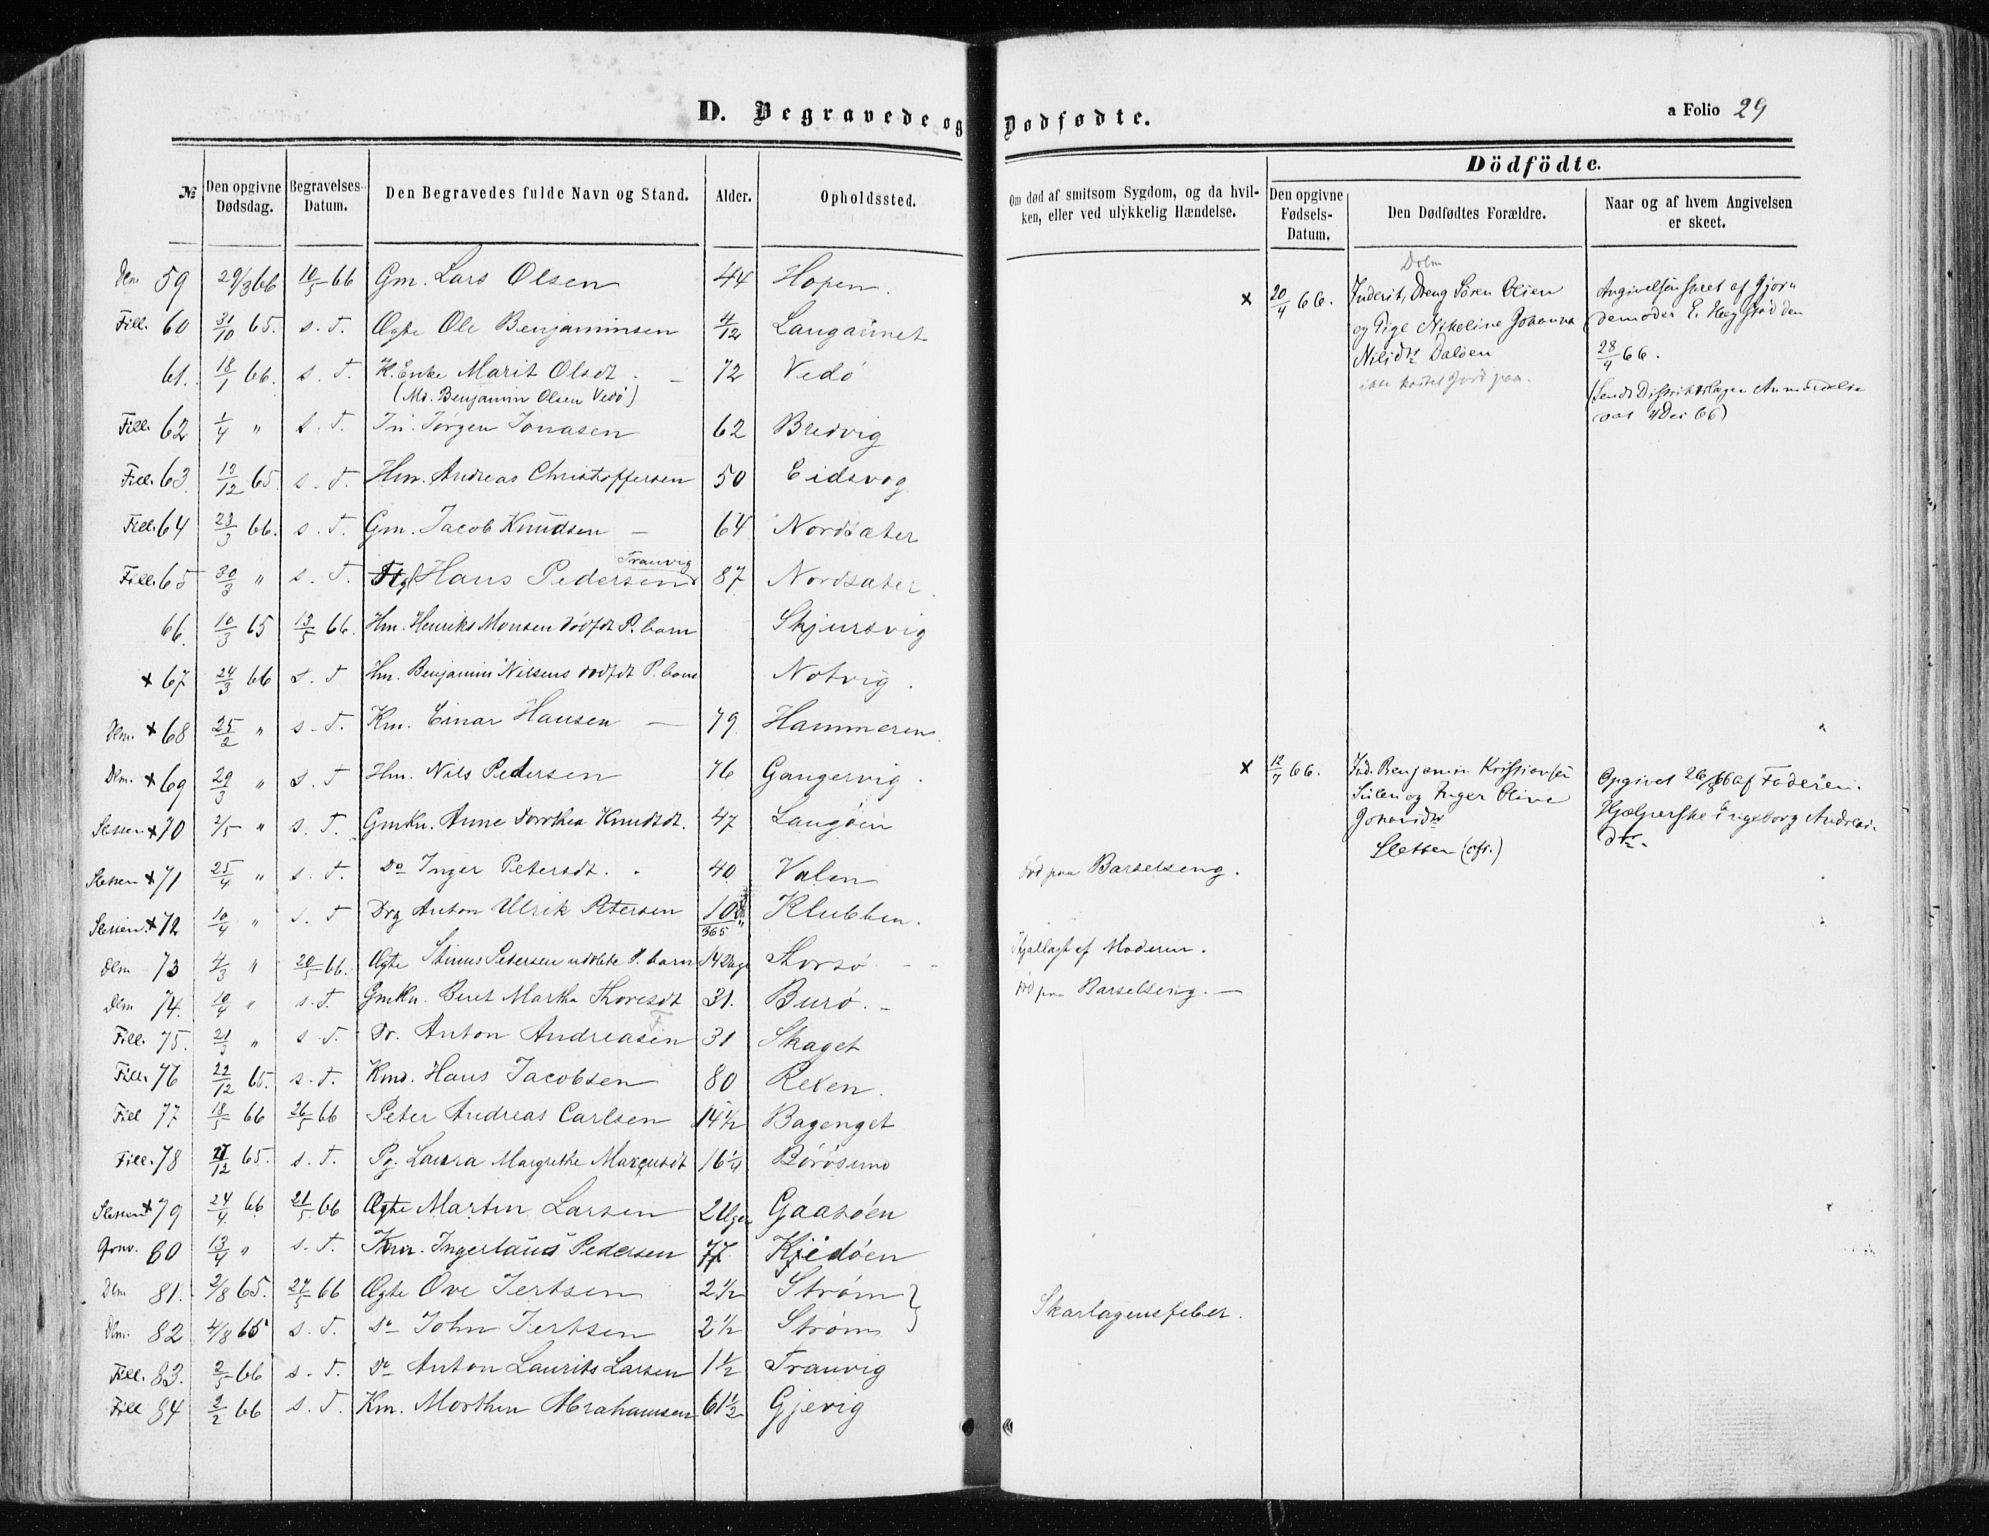 D. Begravede og Dødfødte.
a Folio 29
Dödfödte.
№
Den opgivne Dødsdag.
Begravelses-Datum.
Den Begravedes fulde Navn og Stand.
Alder.
Opholdssted.
Om død af smitsom Sygdom, og da hvil-
ken, eller ved ulykkelig Hændelse.
Den opgivne Fødsels-Datum.
Den Dødfødtes Forældre.
Naar og af hvem Angivelsen er skeet.
Dlm 59 29/3 66 10/5 66 Gm. Lars Olsen 44 Hopen.
Fill. 60 31/10 65. s. T. Ægte Ole Benjaminsen 4/12 Langaunet
61. 18/1 66. s. T. K. Enke Marit Olsdt. 72 Vedø
(Md. Benjamin Olsen Vedø)
Fill. 62 1/4 " s. T. In. Jørgen Jonasen 62 Bredvig
Fill. 63. 13/12 65. s. T. Hm. Andreas Christoffersen 50 Eidsvog
Fill. 64 23/3 66. s. T. Gm. Jacob Knudsen — 64 Nordsæter
Tranvig
Fill. 65 30/3 " s. T. Hans Pedersen 87 Nordsæter.
66. 10/3 65 13/5 66. Hm. Henriks Monsen dødfdt P. barn Skjursvig
x 67 24/3 66 s. T Hm. Benjamin Nilsens dødfdt P. barn Notvig.
Dlm. x 68 25/2 " s. T Km. Einar Hansen — 79. Hammeren
Dlm. x 69 29/3 " s. T Hm. Nils Pedersen 76 Gangervig.
Sletten x 70 2/5 " s. T. Gmkn. Anne Dorthea Knudsdt. 47 Langøen
Sletten x 71 25/4 " s. T. Do Inger Petersdt. 40. Valen
Død paa Barselseng.
Sletten. x 72 10/4 " s. T Drg Anton Ulrik Petersen 10/365 Klubben.
Dlm 73 4/3 " 20/5 66. Ægte Stinus Petersen udøbte P. barn 14 Dage Storsø
Ihjellagt af Moderen.
Dlm 74. 10/4 " s. T. Gmkn. Beret Martha Thoresdt 31. Burø.
Død paa Barselseng. —
Fill. 75. 21/3 " s. T. Dr. Anton Andreasen 31 Skaget
Fill. 76 22/12 65. s. T. Kmd. Hans Jacobsen 80 Rexen.
Fill 77 18/5 66 26/5 66 Peter Andreas Carlsen 14½ Bagenget
Fill. 78 21/12 65. s. T. Pg. Laura Margrethe Marcusdt 16¼ Børøsund
Sletten x 79 24/4 66 21/5 66 Ægte Martin Larsen 2 Uger Gaasøen
80 13/4 " s. T. Km. Ingerlaus Pedersen 77. Kjedøen
Dlm 81. 2/8 65. 27/5 66 Ægte Ove Iertsen 2½ Strøm
Dlm. 82 4/8 65 s. T. Do John Iertsen 2½ Strøm
Skarlagensfeber.
Fill. 83. 2/5 66 s. T. Do Anton Laurits Larsen 1½ Tranvig
Fill 84 2/2 66 s. T. Km. Morthen Abrahamsen 61½ Gjevig
x 20/4 66.
Dolm
Inderst, Dreng Sören Olsen
og Pige Nikoline Johanna
Nilsdtr Daløen
ikke kastet Jord paa.
Angivelsen skeet af Gjor-
demoder E. Hegstad den
28/4 66.
(Sendt Distriktslægen Anmeldelse
Mai 66)
x 12/4 66.
Ind. Benjamin Kristiansen
og Inger Oline
Johansdtr
Sletten (cfr.)
Opgivet 26/8 66 af Faderen.
Hjælperske Ingeborg Andreas-
dtr.